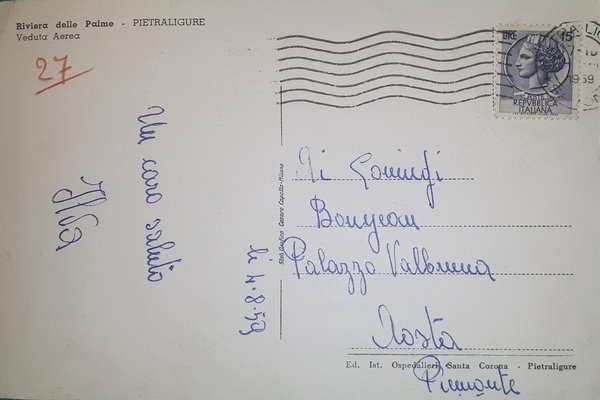 Riviera delle Palme - PIETRALIGURE
Veduta Aerea
27
Un caro saluto
Ilva
li 4.8.59
Stab. Grafico Cesare Capello-Milano
LIRE 15
REPVBBLICA
ITALIANA
1959
Ai Coniugi
Palazzo Valbruna
Aosta
Piemonte
Ed. Ist. Ospedalieri Santa Corona - Pietraligure